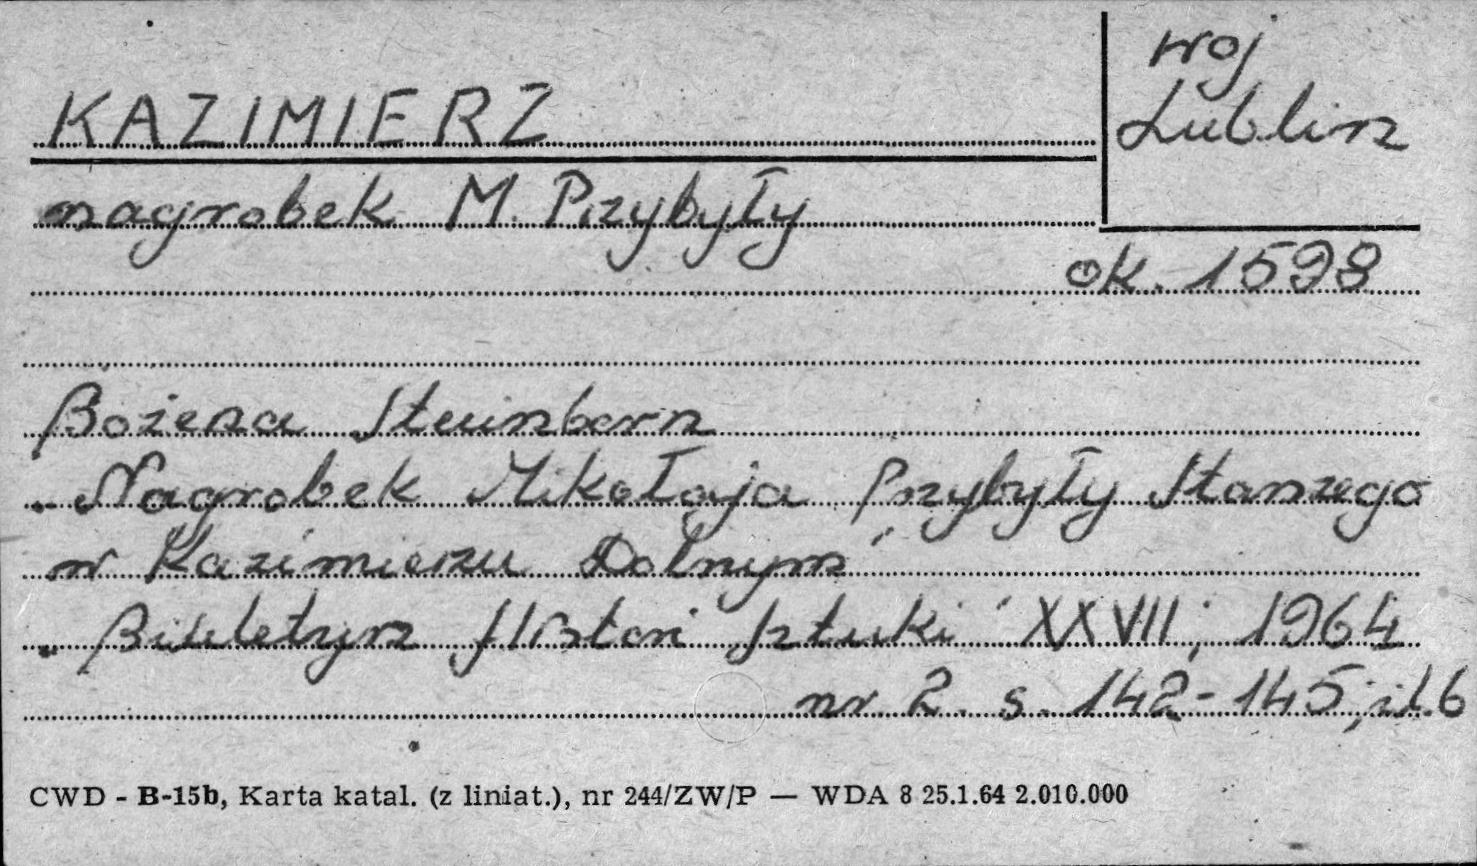 KAZIMIERZ
woj
Lublin
nagrobek M. Przybyły
ok. 1598
Bożena Steinborn
„Nagrobek Mikołaja Przybyły Starszego
w Kazimierzu Dolnym"
„Biuletyn Historii Sztuki" XXVII, 1964
nr 2. s. 142-145, il. 6
CWD - B-15b, Karta katal. (z liniat.), nr 244/ZW/P — WDA 8 25.1.64 2.010.000